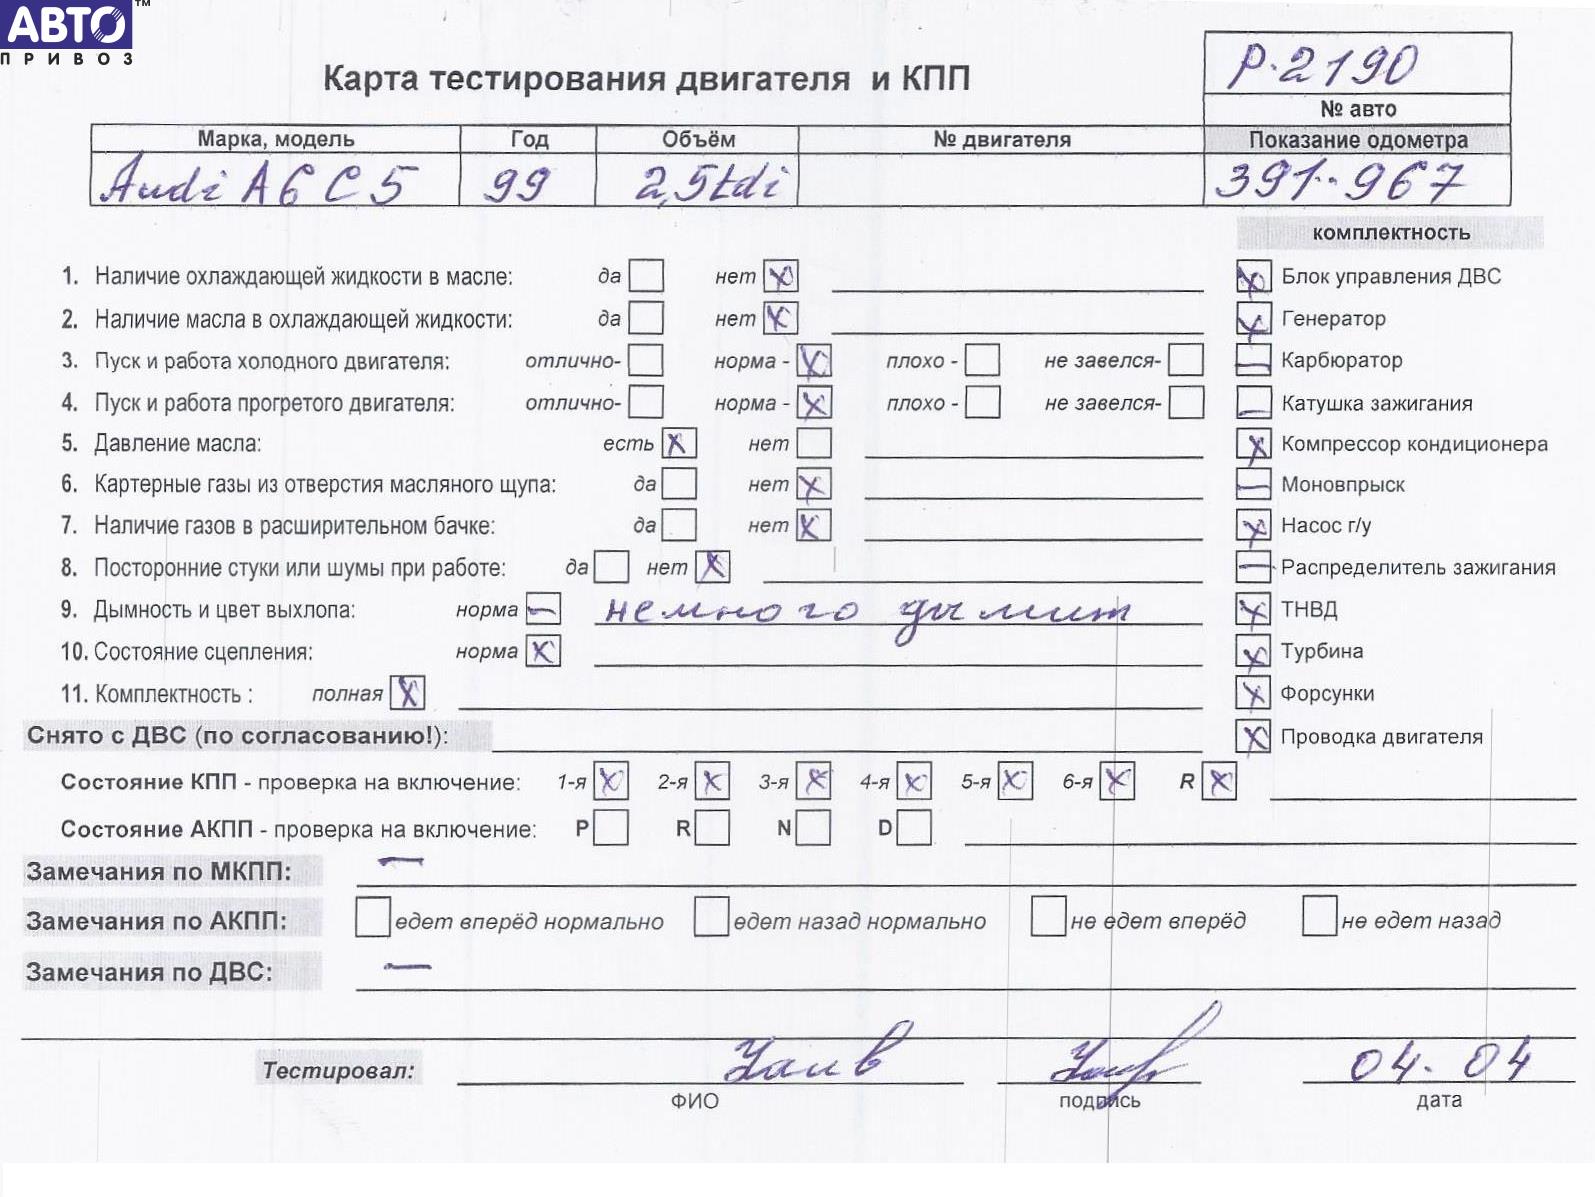 АВТО™
ПРИВОЗ
Карта тестирования двигателя и КПП
Р-2190
№ авто
Марка, модель Год Объём № двигателя Показание одометра
Audi A6 C5 99 2,5tdi 391-967
комплектность
1. Наличие охлаждающей жидкости в масле: да нет x Блок управления ДВС
2. Наличие масла в охлаждающей жидкости: да нет x Генератор
3. Пуск и работа холодного двигателя: отлично- норма - x плохо - не завелся- Карбюратор
4. Пуск и работа прогретого двигателя: отлично- норма - x плохо - не завелся- Катушка зажигания
5. Давление масла: есть x нет Компрессор кондиционера
6. Картерные газы из отверстия масляного щупа: да нет x Моновпрыск
7. Наличие газов в расширительном бачке: да нет x Насос г/у
8. Посторонние стуки или шумы при работе: да нет x Распределитель зажигания
9. Дымность и цвет выхлопа: норма – немного дымит ТНВД
10. Состояние сцепления: норма x Турбина
11. Комплектность : полная x Форсунки
Снято с ДВС (по согласованию!): Проводка двигателя
Состояние КПП - проверка на включение: 1-я x 2-я x 3-я x 4-я x 5-я x 6-я x R x
Состояние АКПП - проверка на включение: P R N D
Замечания по МКПП: –
Замечания по АКПП: едет вперёд нормально едет назад нормально не едет вперёд не едет назад
Замечания по ДВС: –
Тестировал: 04-04
ФИО подпись дата